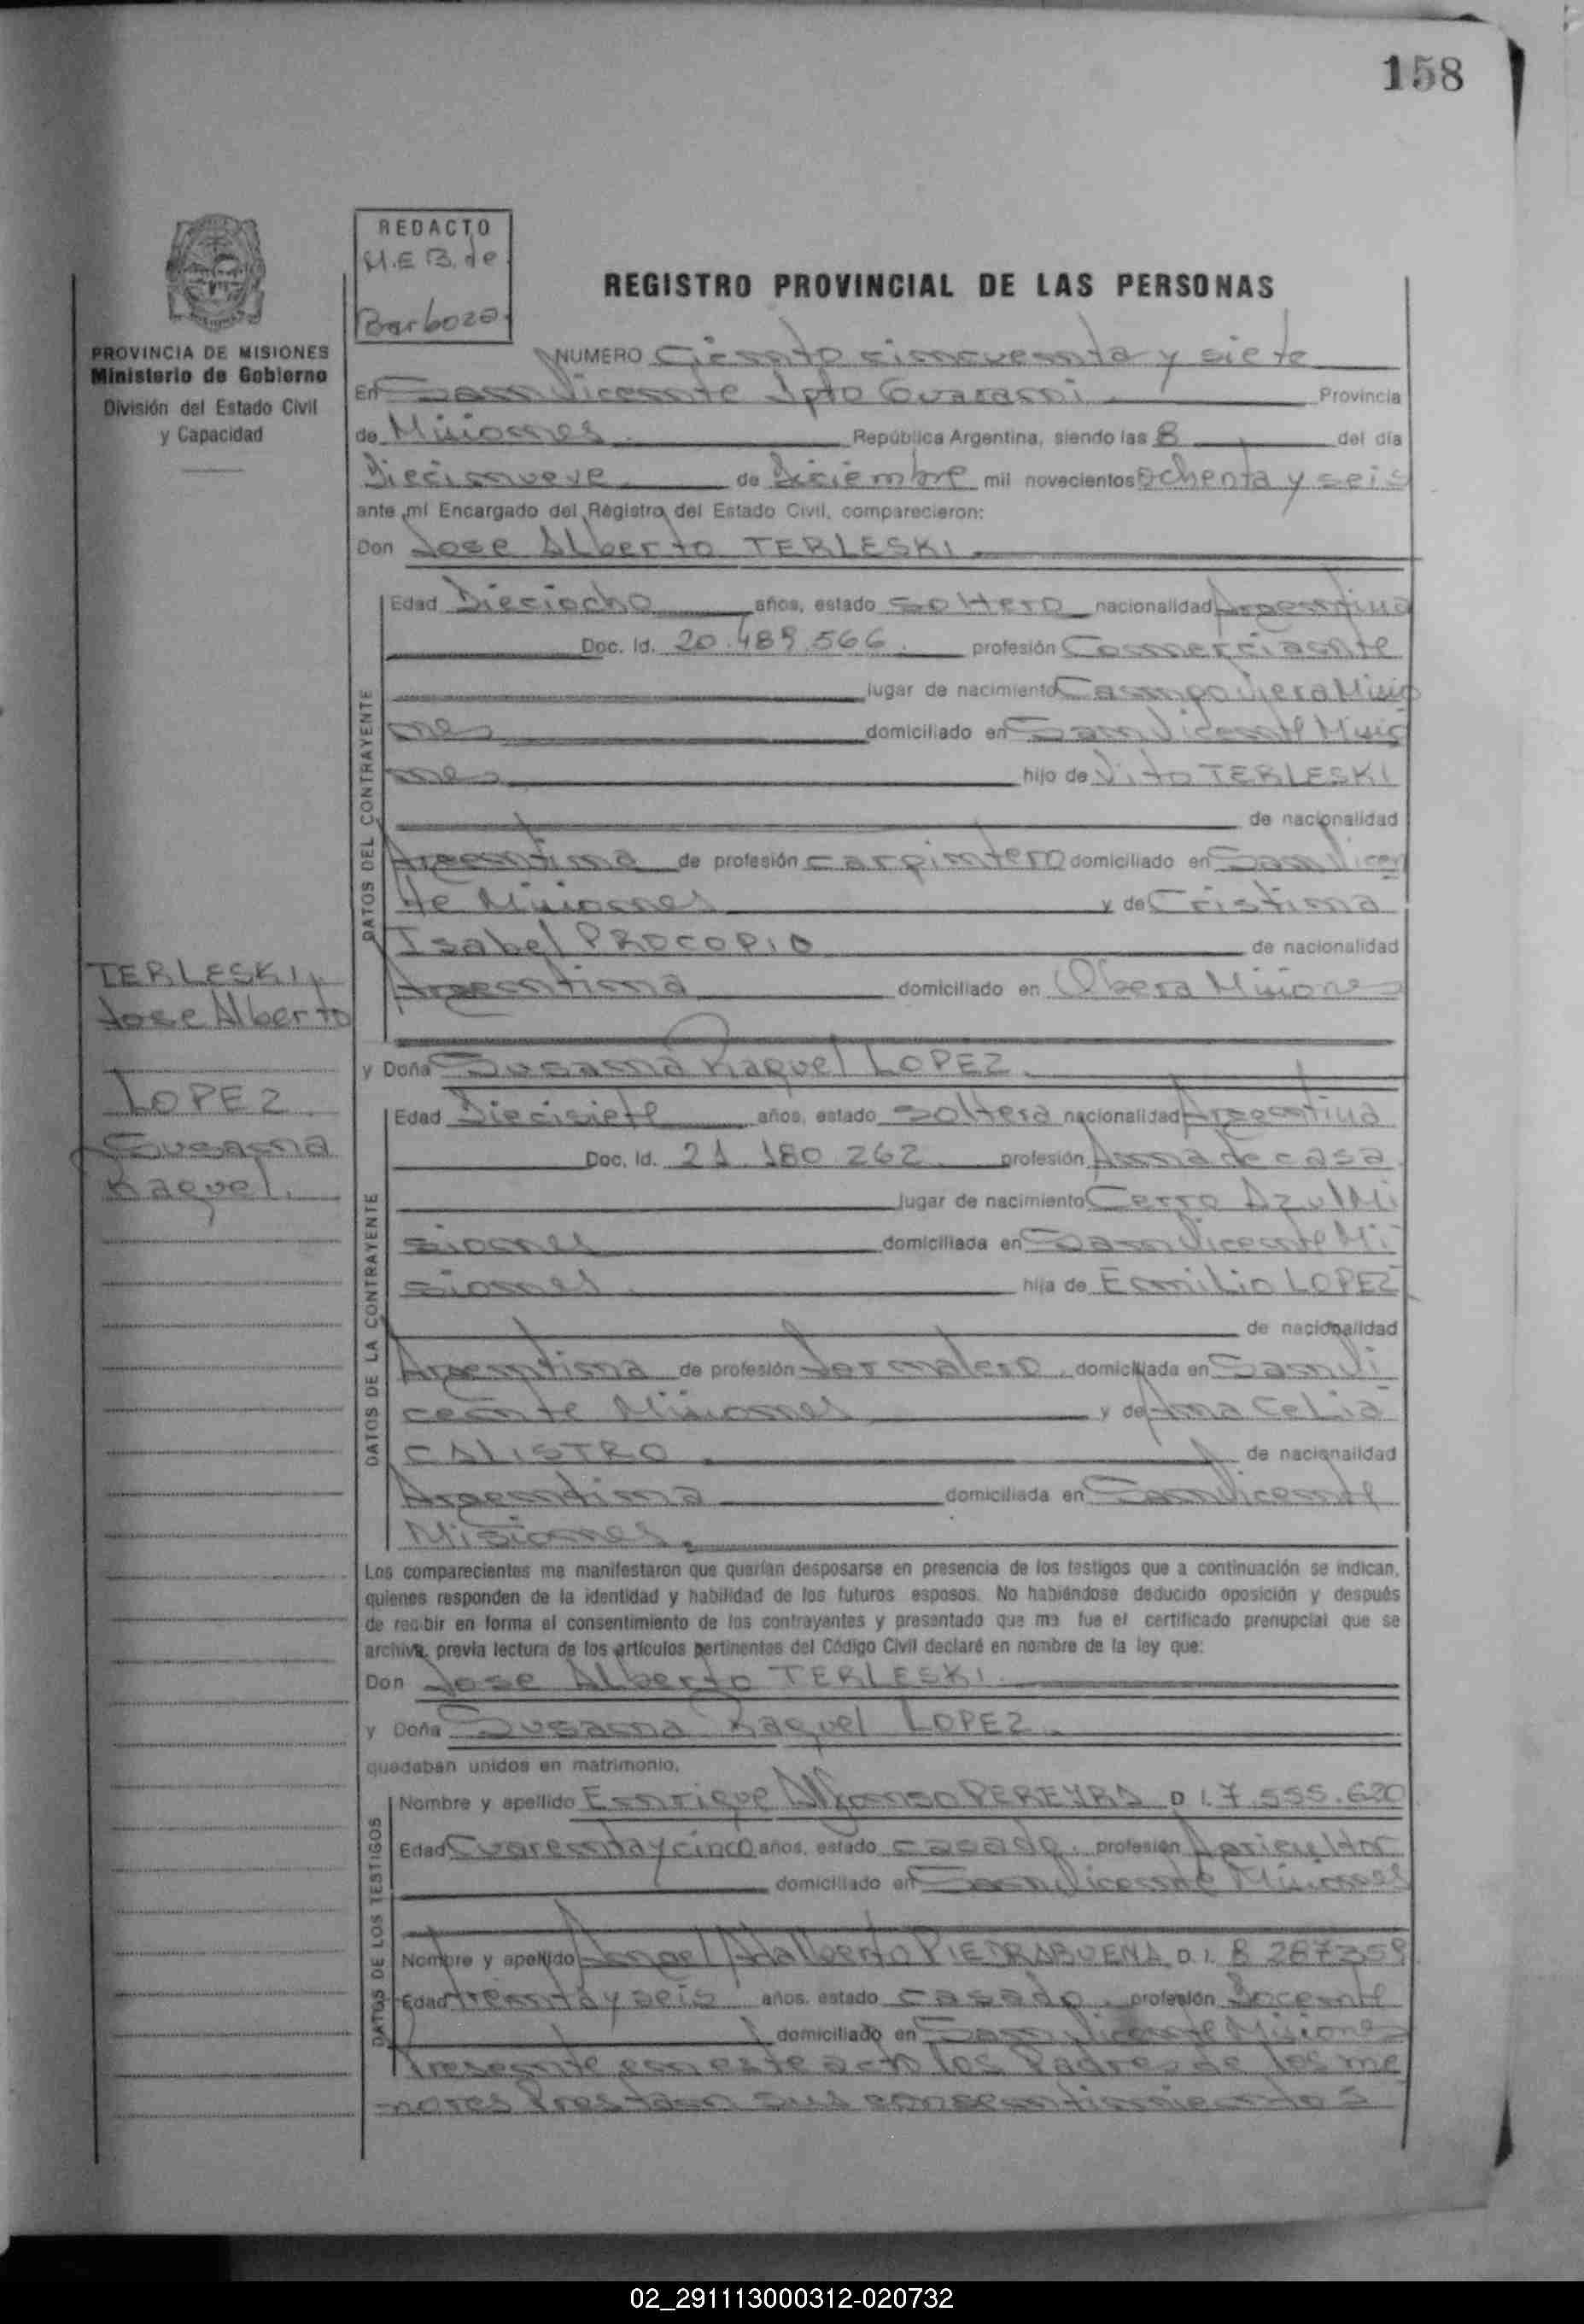 158
REDACTO
M.E B. de
Barboza.
PROVINCIA DE MISIONES
Ministerio de Gobierno
División del Estado Civil
y Capacidad
REGISTRO PROVINCIAL DE LAS PERSONAS
NUMERO Ciento cincuenta y siete
En San Vicente Dpto Guarani Provincia
de Misiones República Argentina, siendo las 8 del día
Diecinueve de Diciembre mil novecientos ochenta y seis
ante mí Encargado del Registro del Estado Civil, comparecieron:
Don Jose Alberto TERLESKI
DATOS DEL CONTRAYENTE
Edad Dieciocho años, estado soltero nacionalidad Argentina
Doc. Id. 20.489.566. profesión Comerciante
lugar de nacimiento Campo Viera Misio
nes domiciliado en San Vicente Misio
nes hijo de Vito TERLESKI
de nacionalidad
Argentina de profesión carpintero domiciliado en San Vicen
te Misiones y de Cristina
Isabel PROCOPIO de nacionalidad
Argentina domiciliado en Obera Misiones
TERLESKI,
Jose Alberto
LOPEZ
Susana
Raquel.
y Doña Susana Raquel LOPEZ.
DATOS DE LA CONTRAYENTE
Edad Diecisiete años, estado soltera nacionalidad Argentina
Doc. Id. 21.180.262 profesión Ama de casa
lugar de nacimiento Cerro Azul Mi
siones domiciliada en San Vicente Mi
siones hija de Emilio LOPEZ
de nacionalidad
Argentina de profesión Jornalero. domiciliada en San Vi
cente Misiones y de Ana Celia
CALISTRO de nacionalidad
Argentina domiciliada en San Vicente
Misiones.
Los comparecientes me manifestaron que querían desposarse en presencia de los testigos que a continuación se indican,
quienes responden de la identidad y habilidad de los futuros esposos. No habiéndose deducido oposición y después
de recibir en forma el consentimiento de los contrayentes y presentado que me fue el certificado prenupcial que se
archiva, previa lectura de los artículos pertinentes del Código Civil declaré en nombre de la ley que:
Don Jose Alberto TERLESKI
y Doña Susana Raquel LOPEZ.
quedaban unidos en matrimonio.
DATOS DE LOS TESTIGOS
Nombre y apellido Enrique Alfonso PEREYRA D I. 7.555.620
Edad Cuarenta y cinco años, estado casado. profesión Agricultor
domiciliado en San Vicente Misiones
Nombre y apellido Angel Adalberto PIETRABUENA D. I. 8 267359
Edad treinta y seis años, estado casado. profesión Docente
domiciliado en San Vicente Misiones
Presente en este acto los Padres de los me
nores Prestan sus consentimientos
02_291113000312-020732